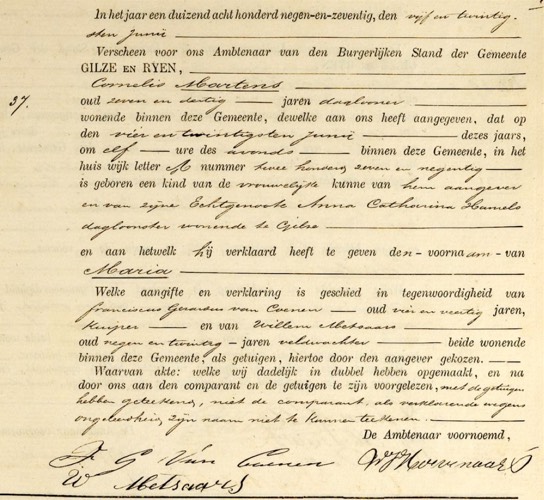 In het jaar een duizend acht honderd negen-en-zeventig, den vijf en twintig-
sten Junij
Verscheen voor ons Ambtenaar van den Burgerlijken Stand der Gemeente
GILZE EN RYEN,
Cornelis Martens
37.
oud zeven en dertig — jaren daglooner
wonende binnen deze Gemeente, dewelke aan ons heeft aangegeven, dat op
den vier en twintigsten Junij — dezes jaars,
om elf — ure des avonds — binnen deze Gemeente, in het
huis wijk letter A nummer twee honderd zeven en negentig —
is geboren een kind van de vrouwelijke kunne van hem aangever
en van zijne Echtgenoote Anna Catharina Hamels
dagloonster wonende te Gilze
en aan hetwelk hij verklaard heeft te geven den- voornaam- van
Maria
Welke aangifte en verklaring is geschied in tegenwoordigheid van
Franciscus Gerardus van Coenen — oud vier en veertig jaren,
Kuiper — en van Willem Metsaars
oud negen en twintig - jaren veldwachter — beide wonende
binnen deze Gemeente, als getuigen, hiertoe door den aangever gekozen. — —
Waarvan akte: welke wij dadelijk in dubbel hebben opgemaakt, en na
door ons aan den comparant en de getuigen te zijn voorgelezen, met de getuigen
hebben geteekend, niet de comparant, als verklarende wegens
ongeleerdheid, zijn naam niet te kunnen teekenen.
De Ambtenaar voornoemd,
F G Van Coenen
W Metsaars